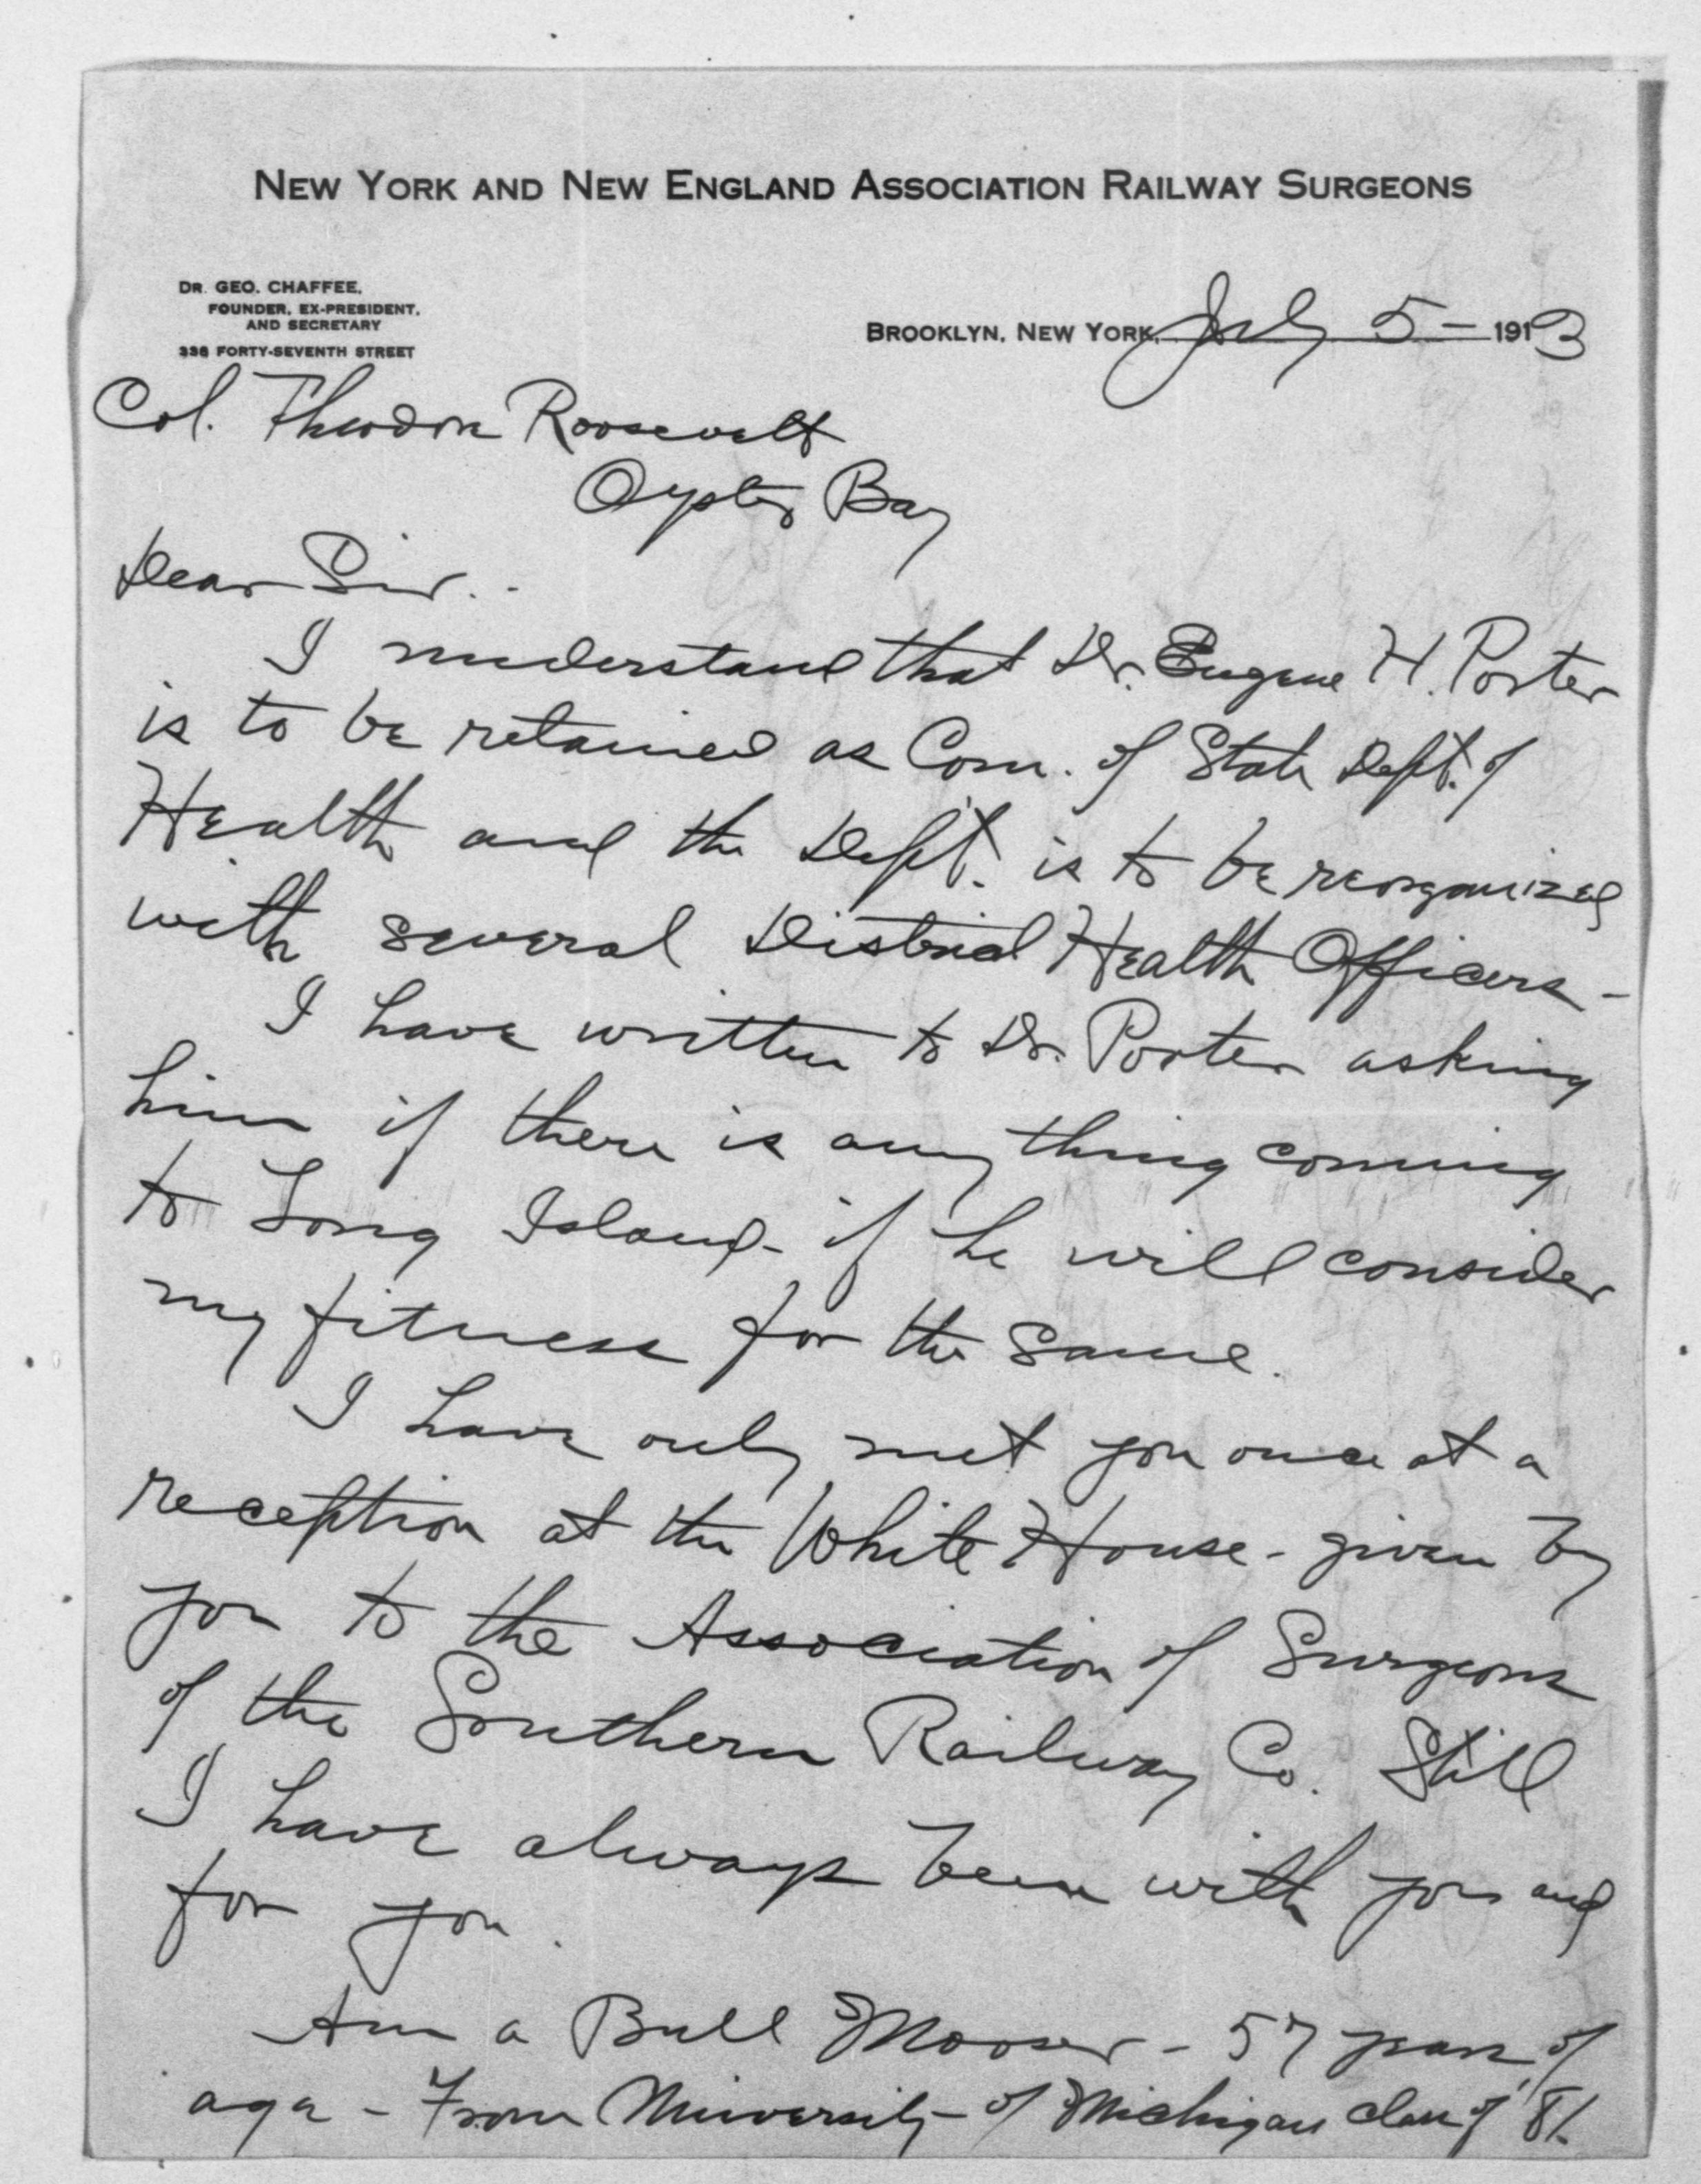 NEW YORK AND NEW ENGLAND ASSOCIATION RAILWAY SURGEONS
DR. GEO. CHAFFEE,
FOUNDER, EX-PRESIDENT,
AND SECRETARY
336 FORTY-SEVENTH STREET
BROOKLYN, NEW YORK, July 5 - 1913
Col. Theodore Roosevelt
Oyster Bay
Dear Sir. -
I understand that Dr. Eugene H. Porter
is to be retained as Com. of State Dept. of
Health and the Dept. is to be reorganized
with several District Health Officers -
I have written to Dr. Porter asking
him if there is any thing coming
to Long Island - if he will consider
my fitness for the same.
I have only met you once at a
reception at the White House - given by
you to the Association of Surgeons
of the Southern Railway Co. Still
I have always been with you and
for you.
Am a Bull Mooser - 57 years of
age - From University of Michigan class of '81.